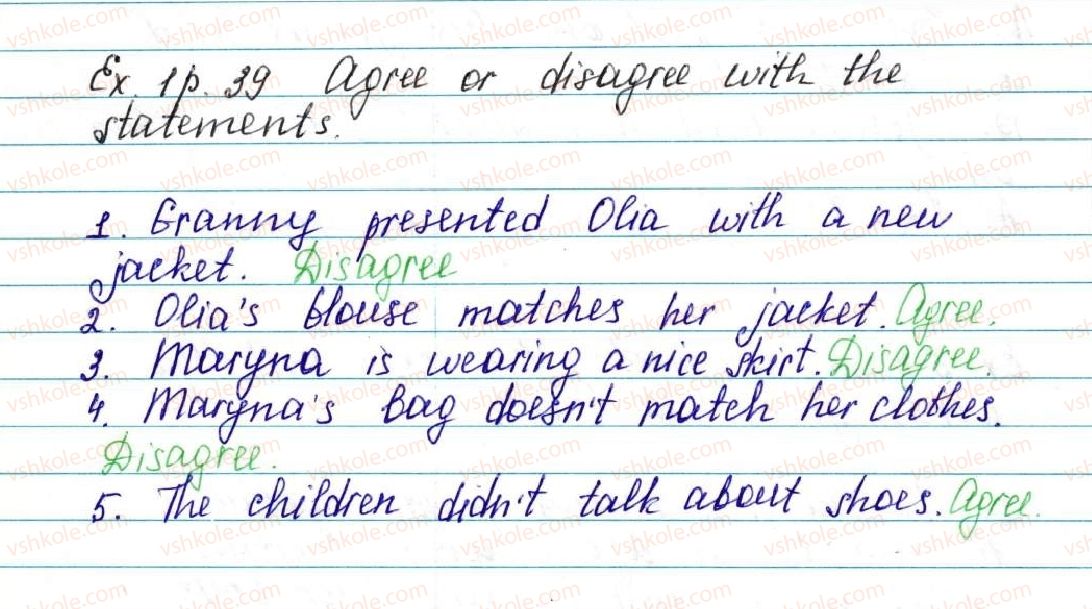 Ex. 1 p. 39 Agree or disagree with the
statements.
1. Granny presented Olia with a new
jacket. Disagree
2. Olia's blouse matches her jacket. Agree.
3. Maryna is wearing a nice skirt. Disagree.
4. Maryna's bag doesn't match her clothes.
Disagree.
5. The children didn't talk about shoes. Agree.